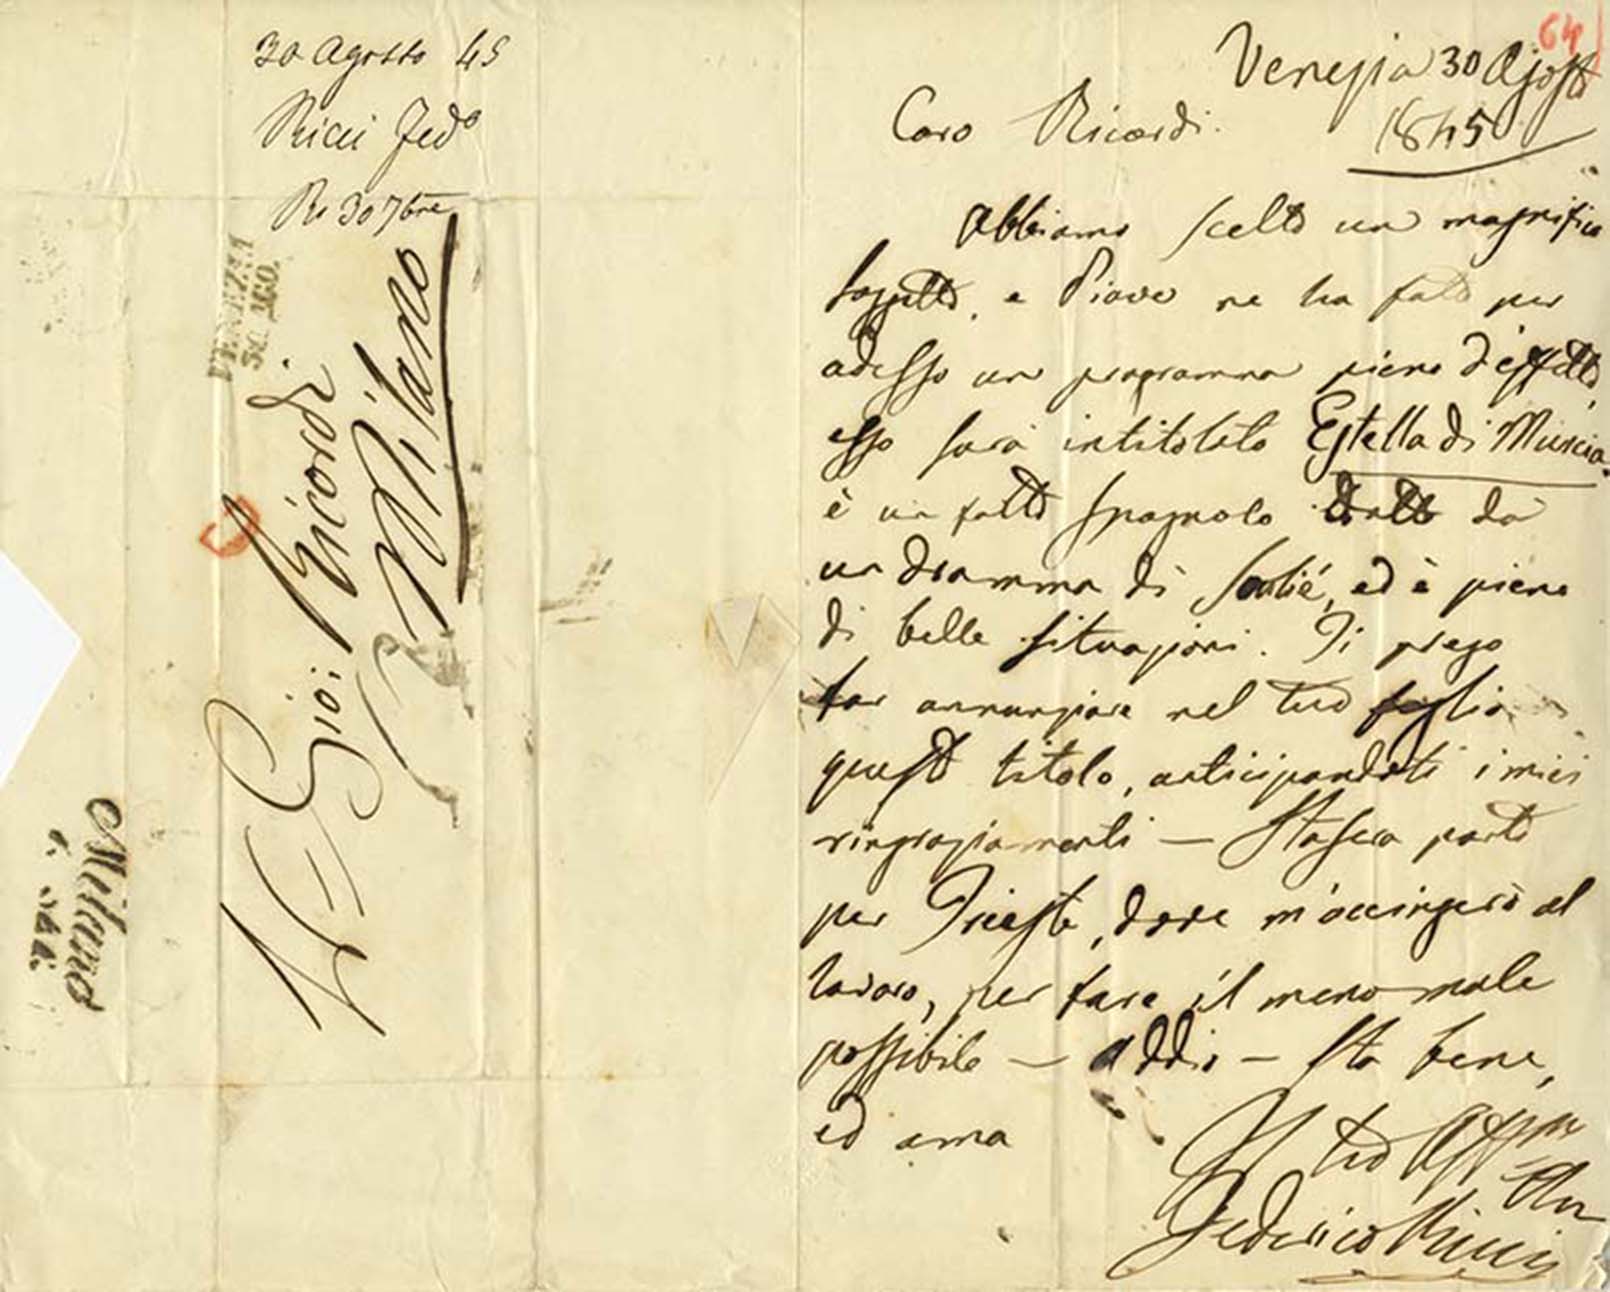 30 Agosto 45
Ricci Fedo
R. 30 7bre
VENEZIA
30. AGO.
A = Gio: Ricordi
Milano
Milano
64
Venezia 30 Agosto
1845
Caro Ricordi.
Abbiamo scelto un magnifico
soggetto, e Piave ne ha fatto per
adesso un programma pieno d'effetto,
esso sarà intitolato Estella di Murcia.
è un fatto spagnolo tratto da
un dramma di Soulié, ed è pieno
di belle situazioni. Ti prego
far annunziare nel tuo foglio
questo titolo, anticipandoti i miei
ringraziamenti — Stasera parto
per Trieste, dove m'accingerò al
lavoro, per fare il meno male
possibile — addio — sta bene,
ed ama
Il tuo Affmo
Federico Ricci